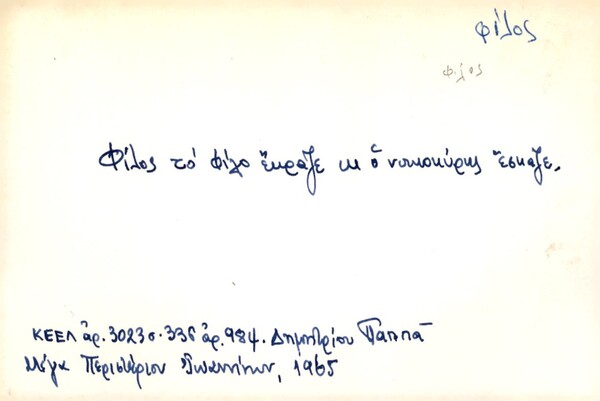 φίλος
φιλος
Φίλος τό φίλο ἔκραζε κι ὁ νοικοκύρης ἔσκαζε.
ΚΕΕΛ ἀρ. 3023 σ. 336 ἀρ. 984. Δημητρίου Παππᾶ
Μέγα Περιστέριον Ἰωαννίνων, 1965